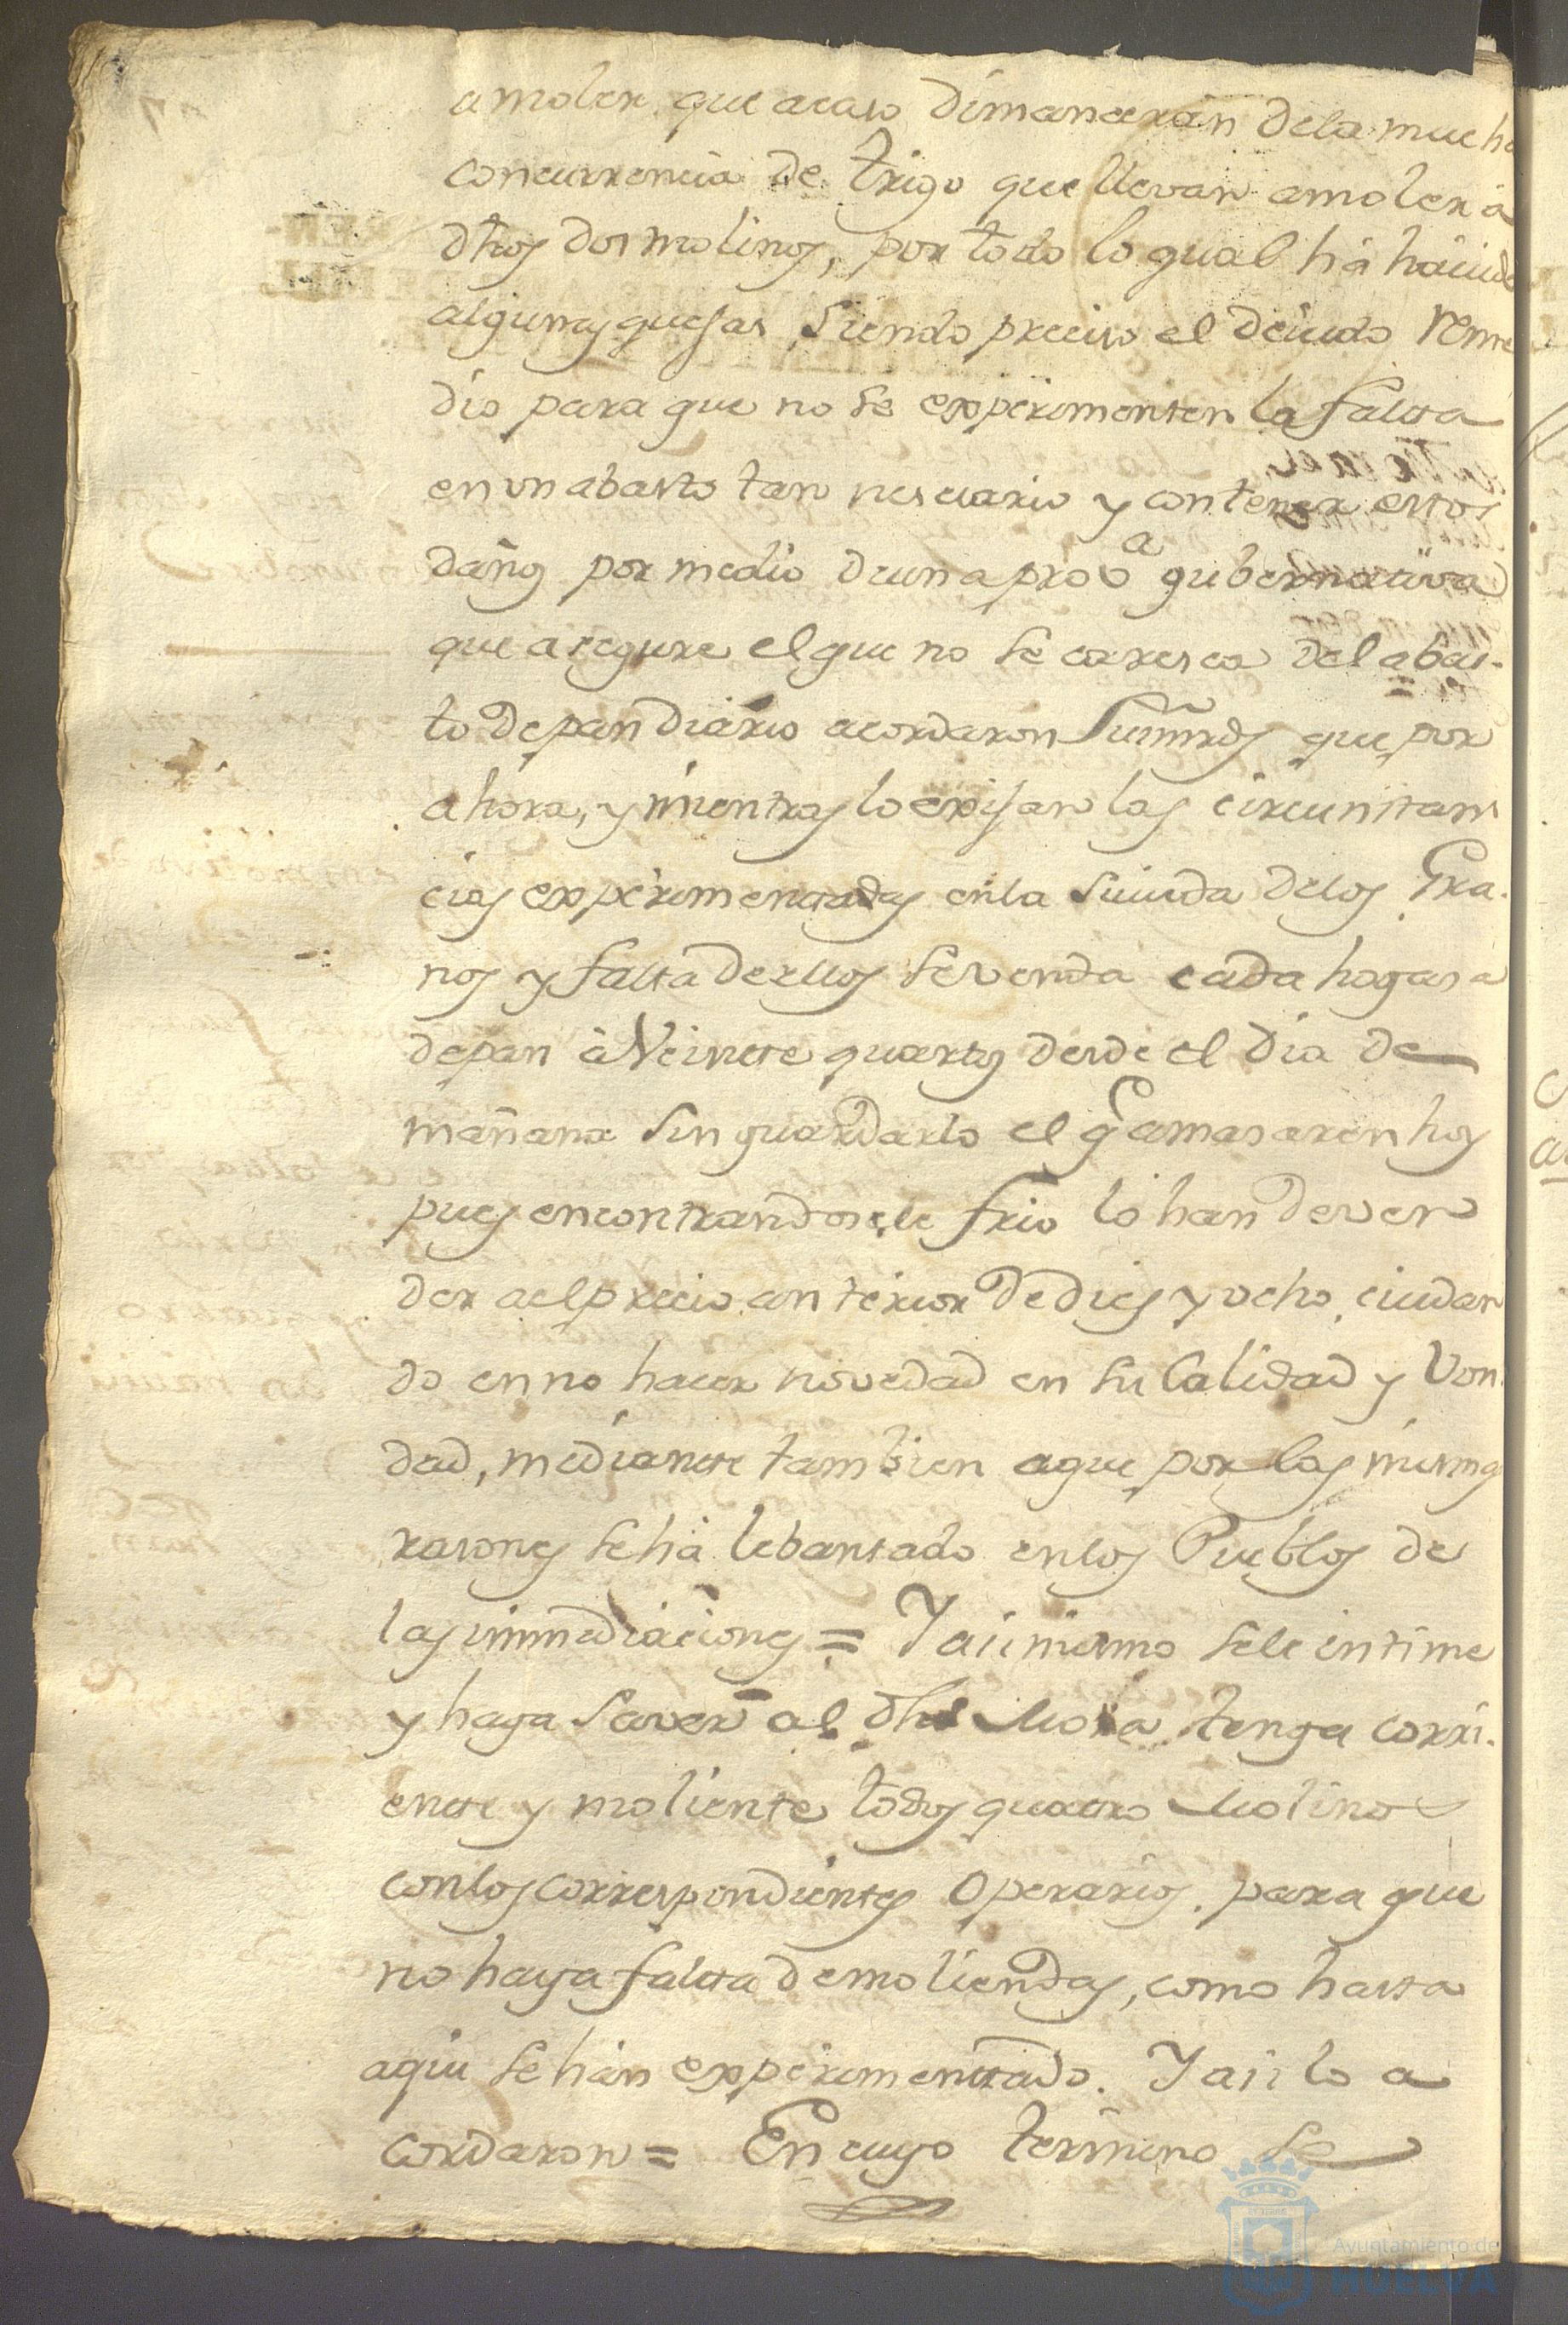 a moler que acaso dimanaràn de la mucha
concurrencia de trigo que llevan a moler à
dhos dos molinos, por todo lo qual hà hàvido
algunas quejas siendo preciso el devido reme
dio para que no se experimenten la falta
en un abasto tan nesesario y contener estos
daños por medio de una provª gubernativa
que asegure el que no se caresca del abas-
to de pan diàrio acordaron Sus mrds que por
ahora, y mientras lo exijan las circunstan
cias experimentadas en la suvida de los Gra-
nos y falta de ellos se venda cada hogasa
de pan à Veinte quartos desde el dia de
mañana sin guardarlo el q̃ amasaren hoy
pues encontrandosele frio lo han de ven
der a el precio anterior de dies y ocho, cuidan
do en no hacer novedad en su Calidad y Von
dad, mediante tambien a que por las mismas
rasones se hà lebantado en los Pueblos de
las immediaciones = Y asi mismo se le intime
y haga saver al dho Mora tenga corri-
ente y moliente todos quatro Molinos
con los correspondientes Operarios, para que
no haya falta de moliendas, como hasta
aqui se hàn experimentado. Y asi lo a
cordaron = En cuyo termino se
Ayuntamiento de
HUELVA